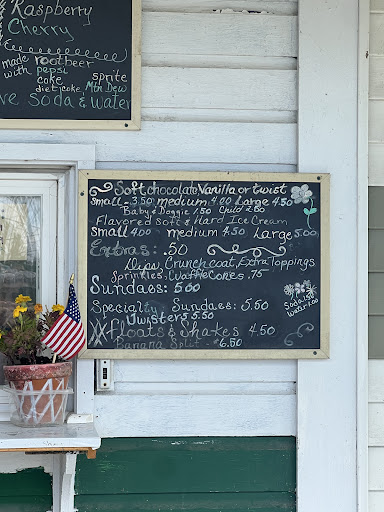 Raspberry
Cherry
made rootbeer
with pepsi
coke sprite
diet coke Mtn Dew
ve Soda & water
Soft chocolate Vanilla or twist
small - 3.50 medium 4.00 Large 4.50
Baby & Doggie 1.50 Child 2.50
Flavored Soft & Hard Ice Cream
Small 4.00 medium 4.50 Large 5.00
Extras: .50
Dips, Crunch coat, Extra Toppings
Sprinkles, Waffle Cones .75
Sundaes: 5.00
Specialty Sundaes: 5.50
Twisters 5.50
Floats & Shakes 4.50
Banana Split - 6.50
Soda 1.50
water 1.00